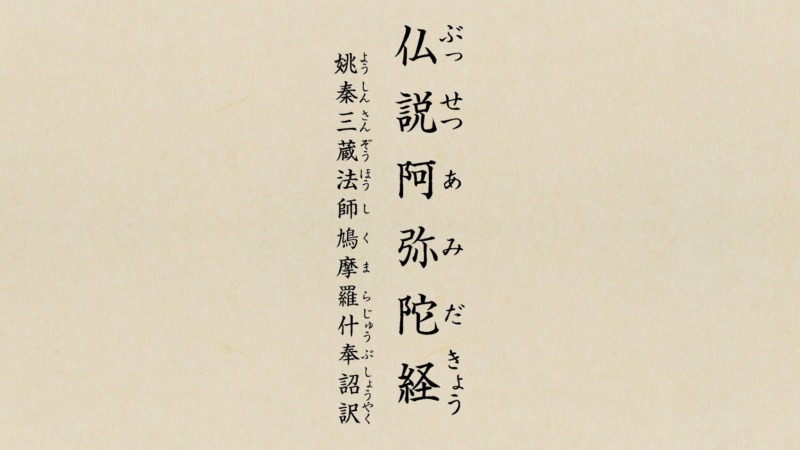 仏説阿弥陀経
ぶっせつあみだきょう
姚秦三蔵法師鳩摩羅什奉詔訳
ようしんさんぞうほうしくまらじゅうぶしょうやく